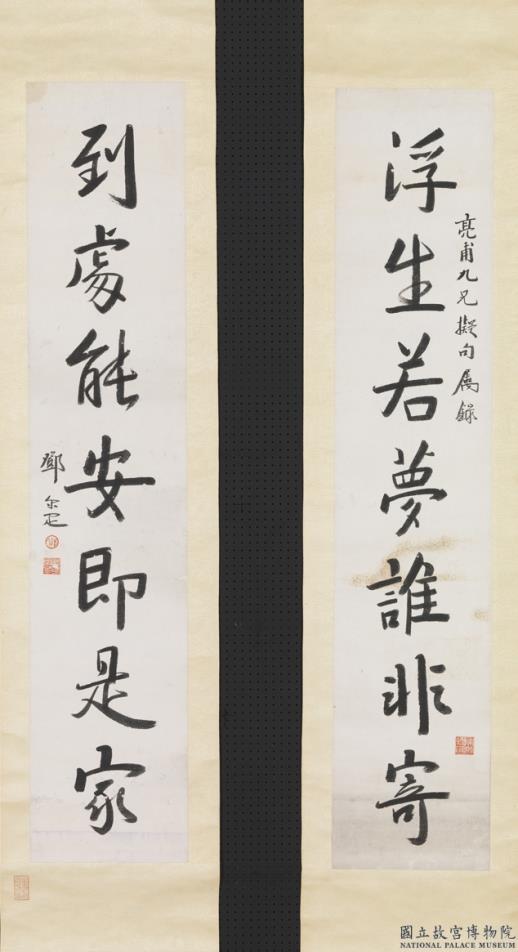 浮生若夢誰非寄
亮甫九兄擬句屬錄
到處能安即是家
鄧尔疋
國立故宮博物院
NATIONAL PALACE MUSEUM